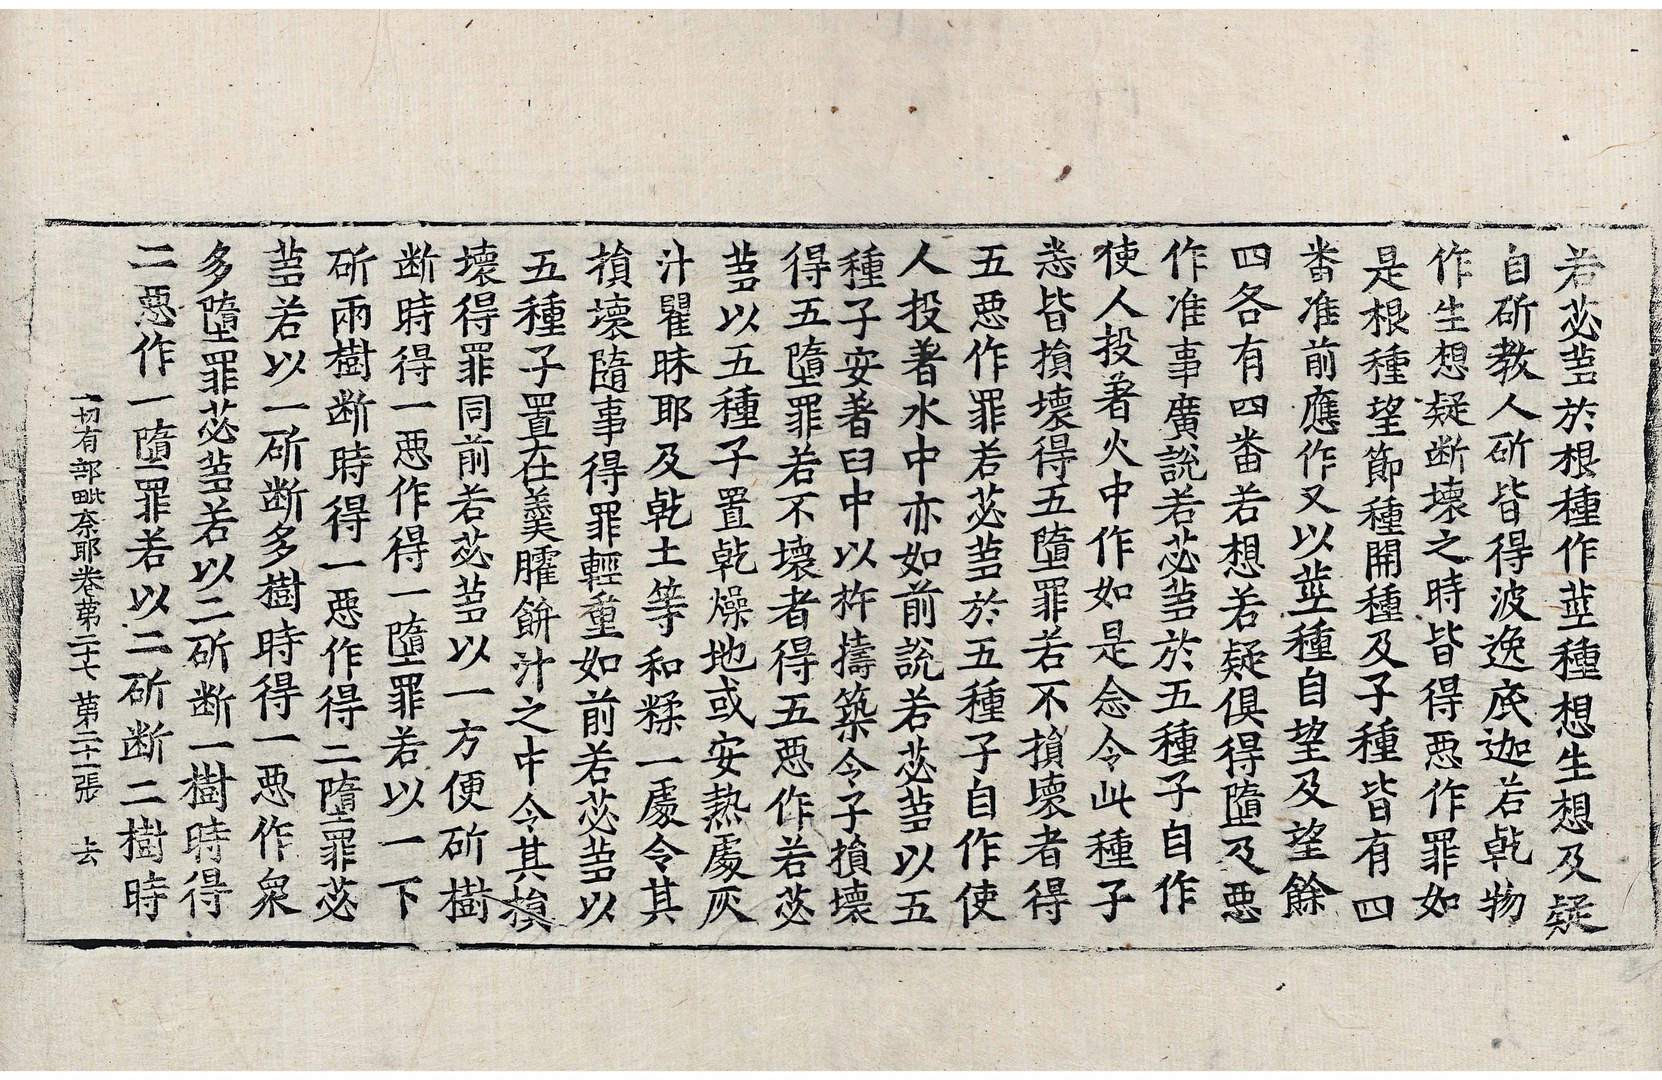 若苾蒭於根種作莖種想生想及疑
自斫教人斫皆得波逸底迦若乾物
作生想疑断壞之時皆得惡作罪如
是根種望節種開種及子種皆有四
畨准前應作又以莖種自望及望餘
四各有四畨若想若疑俱得墮及惡
作准事廣說若苾蒭於五種子自作
使人投著火中作如是念令此種子
悉皆損壞得五墮罪若不損壞者得
五惡作罪若苾蒭於五種子自作使
人投著水中亦如前說若苾蒭以五
種子安著臼中以杵擣築令子損壞
得五墮罪若不壞者得五惡作若苾
蒭以五種子置乾燥地或安熱處灰
汁瞿昧耶及乾土等和糅一處令其
損壞隨事得罪輕重如前若苾蒭以
五種子置在羹臛餅汁之中令其損
壞得罪同前若苾蒭以一方便斫樹
断時得一惡作得一墮罪若以一下
斫兩樹断時得一惡作得二墮罪苾
蒭若以一斫断多樹時得一惡作衆
多墮罪苾蒭若以二斫断一樹時得
二惡作一墮罪若以二斫断二樹時
一切有部毗奈耶卷苐二十七 苐二十一張 去